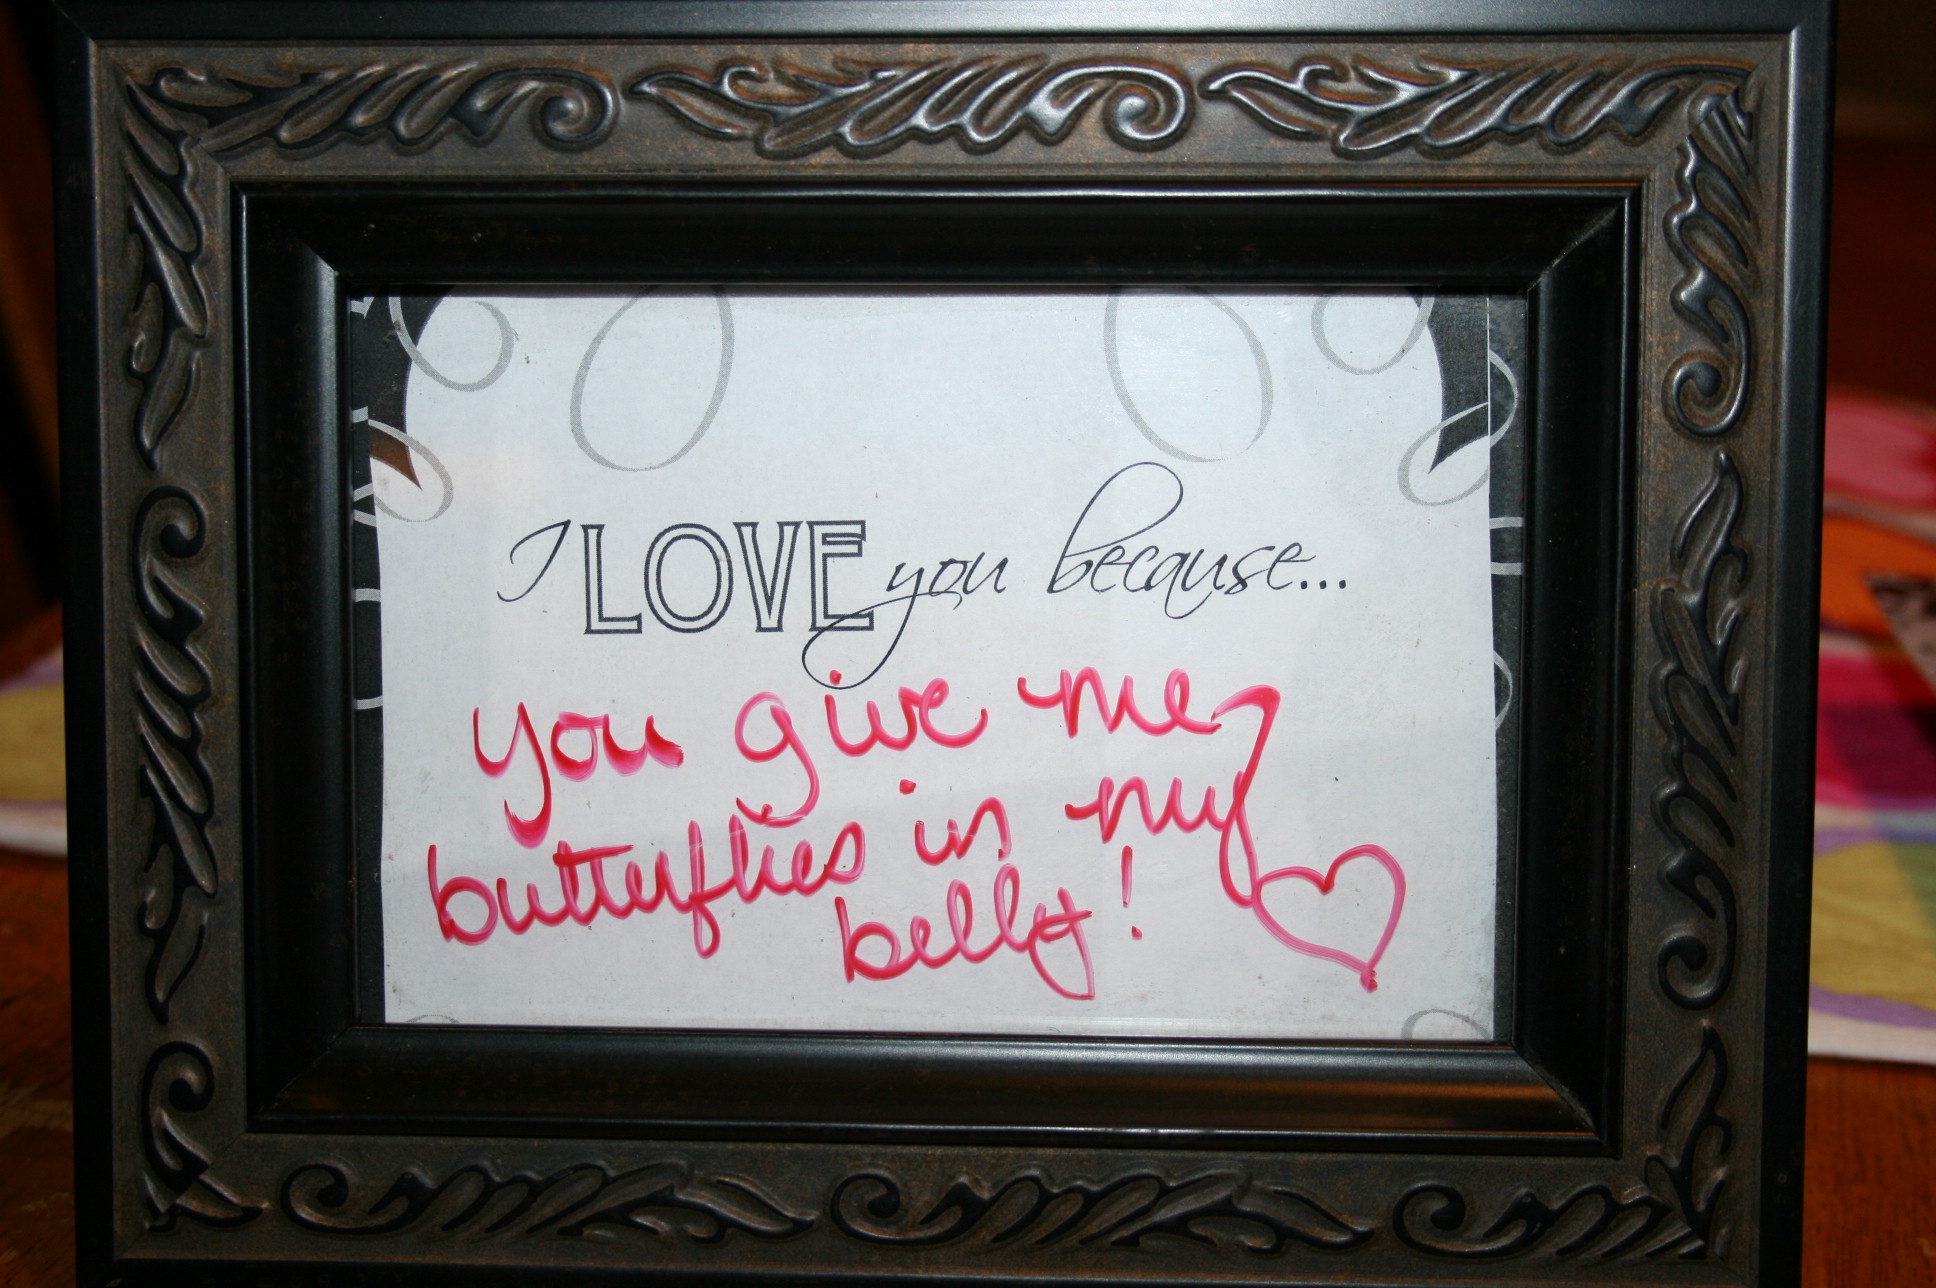 I LOVE you because...
you give me
butterflies in my
belly!